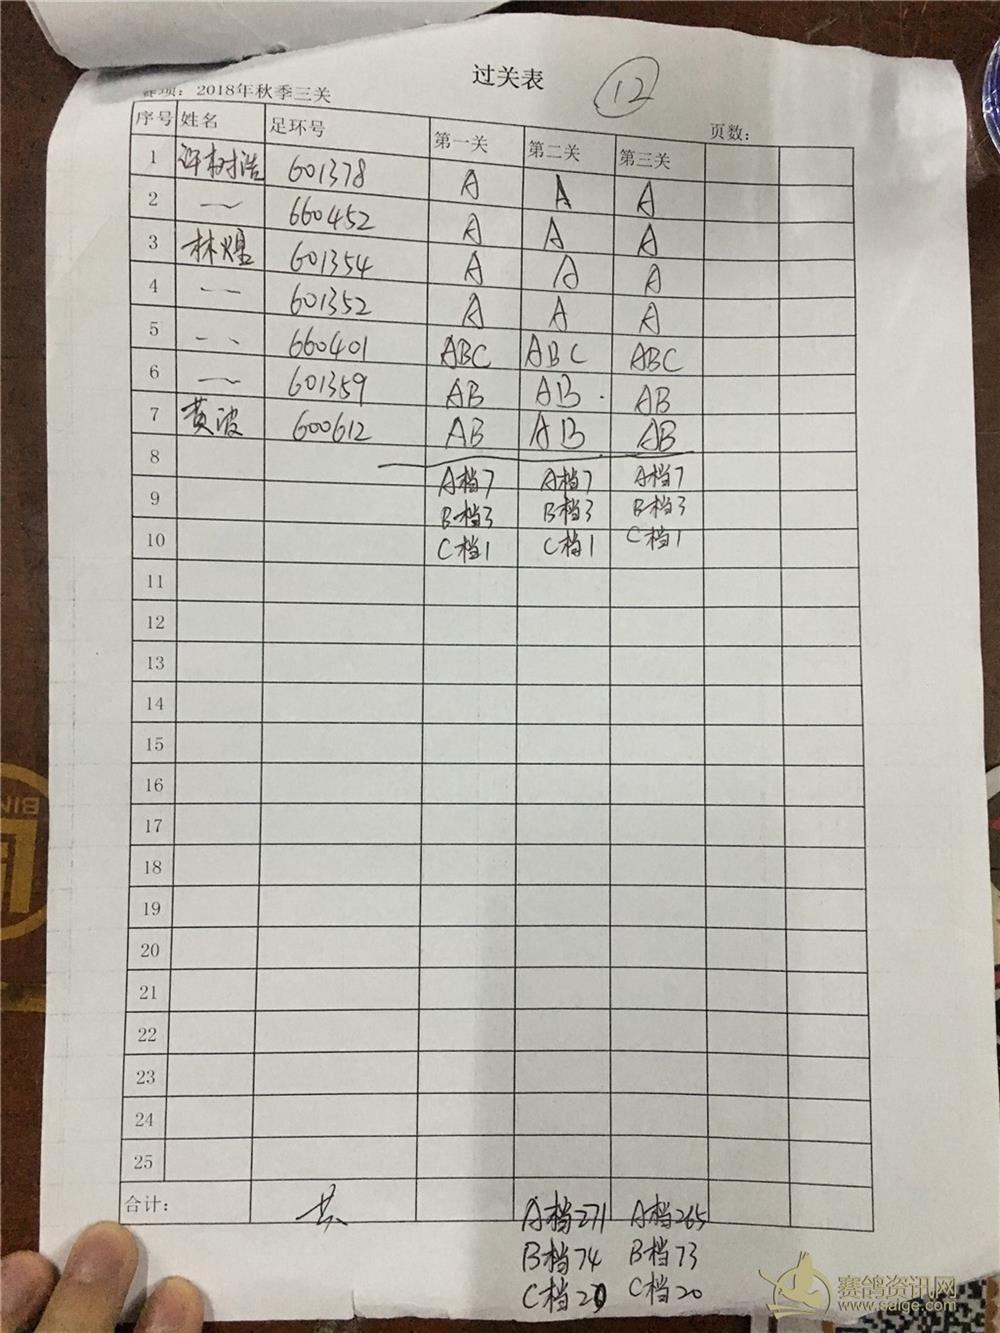 过关表
12
赛项：2018年秋季三关
页数：
序号 姓名 足环号 第一关 第二关 第三关
1 许树浩 601378 A A A
2 〃 660452 A A A
3 林煌 601354 A A A
4 〃 601352 A A A
5 〃 660401 ABC ABC ABC
6 〃 601359 AB AB AB
7 黄波 600612 AB AB AB
8 A档7 A档7 A档7
9 B档3 B档3 B档3
10 C档1 C档1 C档1
11
12
13
14
15
16
17
18
19
20
21
22
23
24
25
合计： 共 A档271 A档265
B档74 B档73
C档20 C档20
赛鸽资讯网
www.saige.com